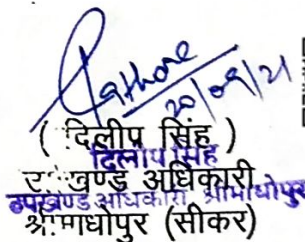 Rathore
20/09/21
( दिलीप सिंह )
दिलीप सिंह
उपखण्ड अधिकारी
उपखण्ड अधिकारी श्रीमाधोपुर
श्रीमाधोपुर (सीकर)